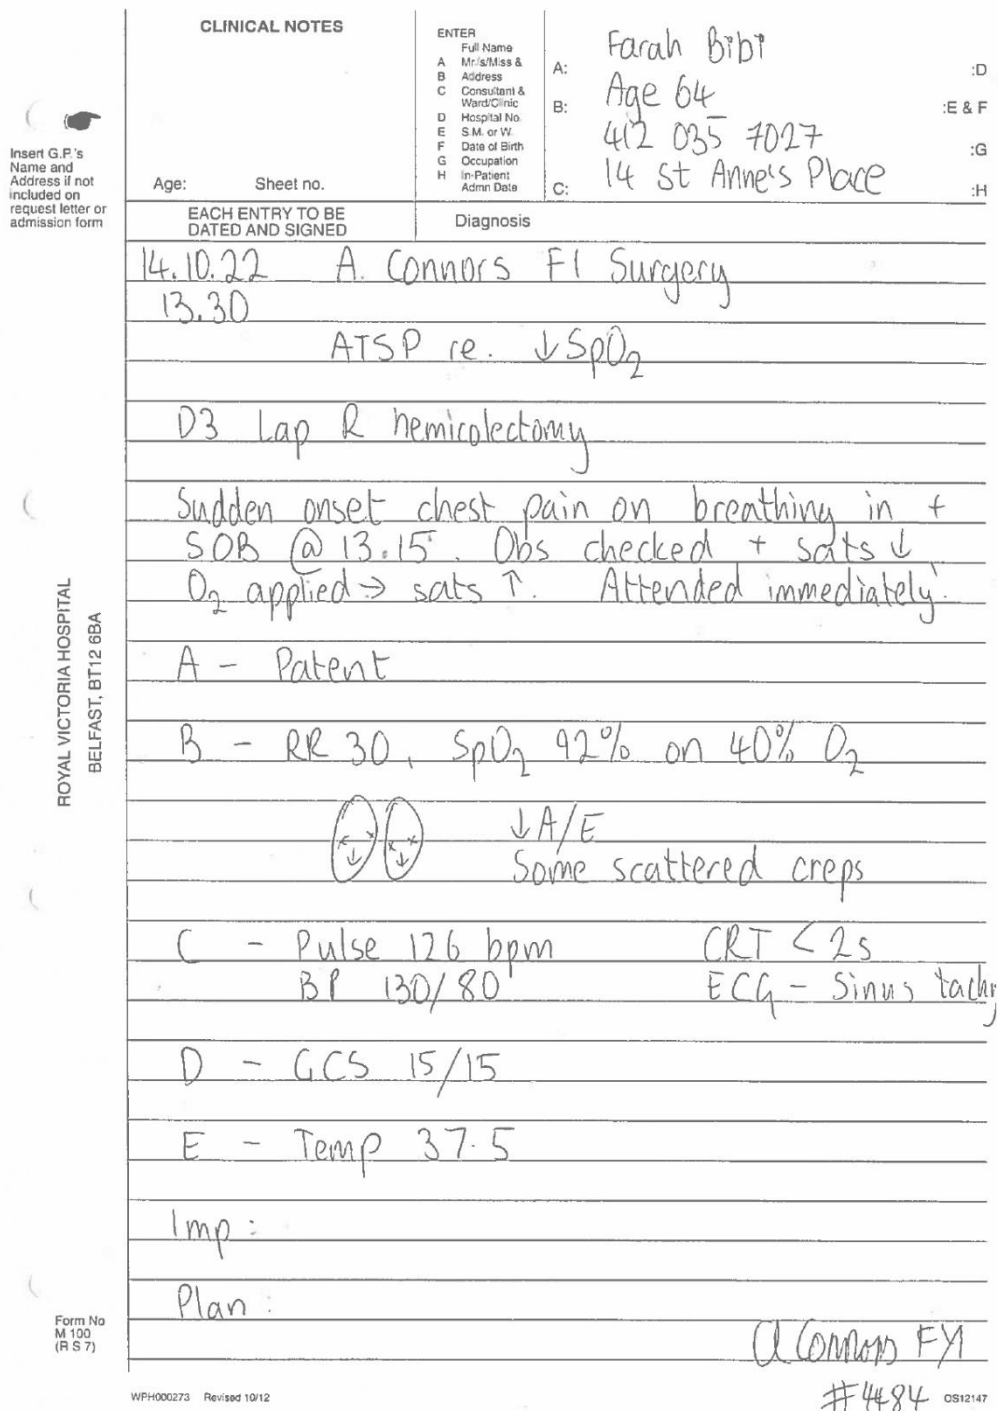 CLINICAL NOTES
Age: Sheet no.
ENTER
Full Name
A Mr/s/Miss &
B Address
C Consultant &
Ward/Clinic
D Hospital No.
E S.M. or W.
F Date of Birth
G Occupation
H In-Patient
Admn Date
A: Farah Bibi :D
B: Age 64 :E & F
412 035 7027 :G
C: 14 St Anne's Place :H
Insert G.P.'s
Name and
Address if not
included on
request letter or
admission form
EACH ENTRY TO BE
DATED AND SIGNED
Diagnosis
14.10.22 A. Connors F1 Surgery
13.30
ATSP re. ↓SpO₂
D3 Lap R hemicolectomy
Sudden onset chest pain on breathing in +
SOB @ 13.15. Obs checked + sats ↓
O₂ applied → sats ↑. Attended immediately.
A - Patent
B - RR 30, SpO₂ 92% on 40% O₂
↓A/E
Some scattered creps
C - Pulse 126 bpm CRT < 2s
BP 130/80 ECG - Sinus tachy
D - GCS 15/15
E - Temp 37.5
Imp:
Plan:
A Connors FY1
#4484
ROYAL VICTORIA HOSPITAL
BELFAST, BT12 6BA
Form No
M 100
(R S 7)
WPH000273 Revised 10/12
OS12147